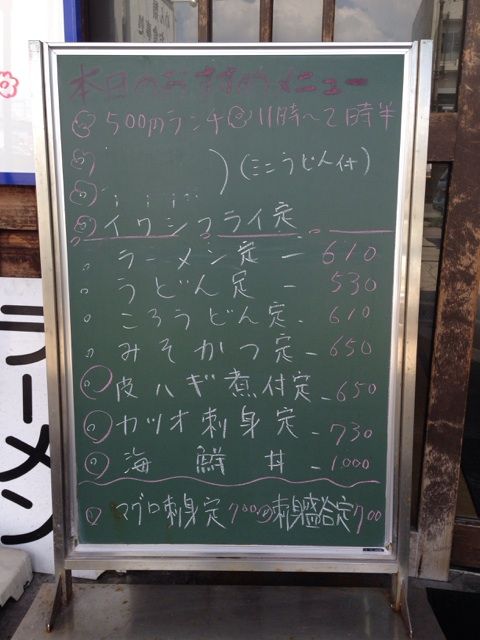 本日のおすすめメニュー
500円ランチ 11時〜2時半
(ミニうどん付)
イワシフライ定
ラーメン定 - 610
うどん定 - 530
ころうどん定 - 610
みそかつ定 - 650
皮ハギ煮付定 - 650
カツオ刺身定 - 730
海鮮丼 - 1000
マグロ刺身定 700 刺身盛合定 700
ラーメン